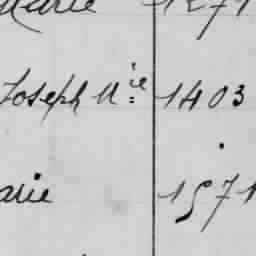 Marie 1271
Joseph Mie 1403
arie 1571